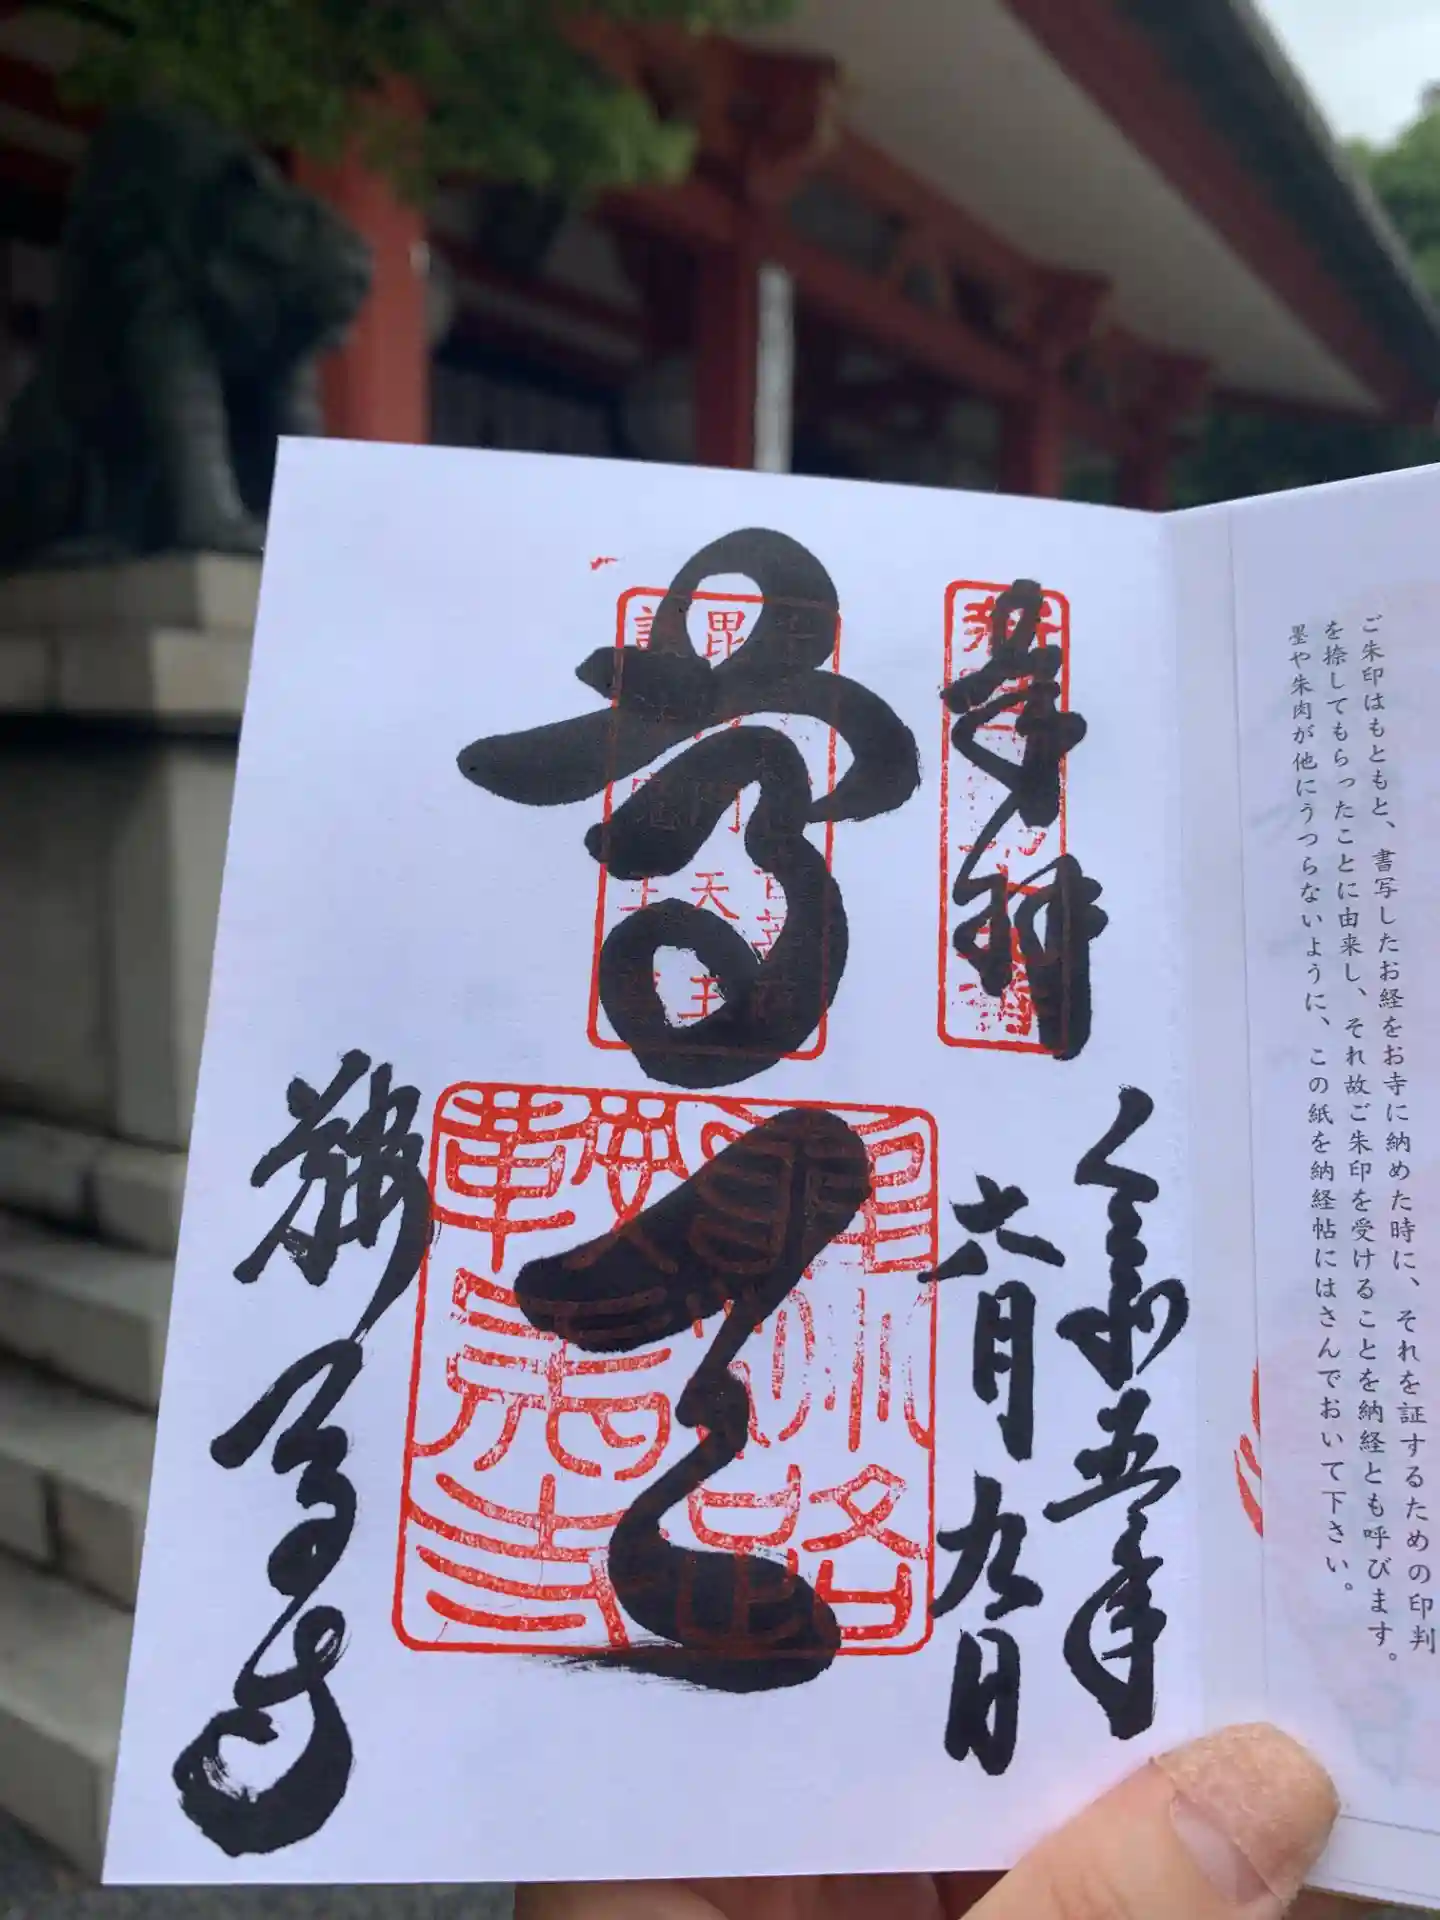 ご朱印はもともと、書写したお経をお寺に納めた時に、それを証するための印判
を捺してもらったことに由来し、それ故ご朱印を受けることを納経とも呼びます。
墨や朱肉が他にうつらないように、この紙を納経帖にはさんでおいて下さい。
奉拝
令和五年
六月九日
尊天
毘沙門天王
鞍馬寺
鞍馬寺